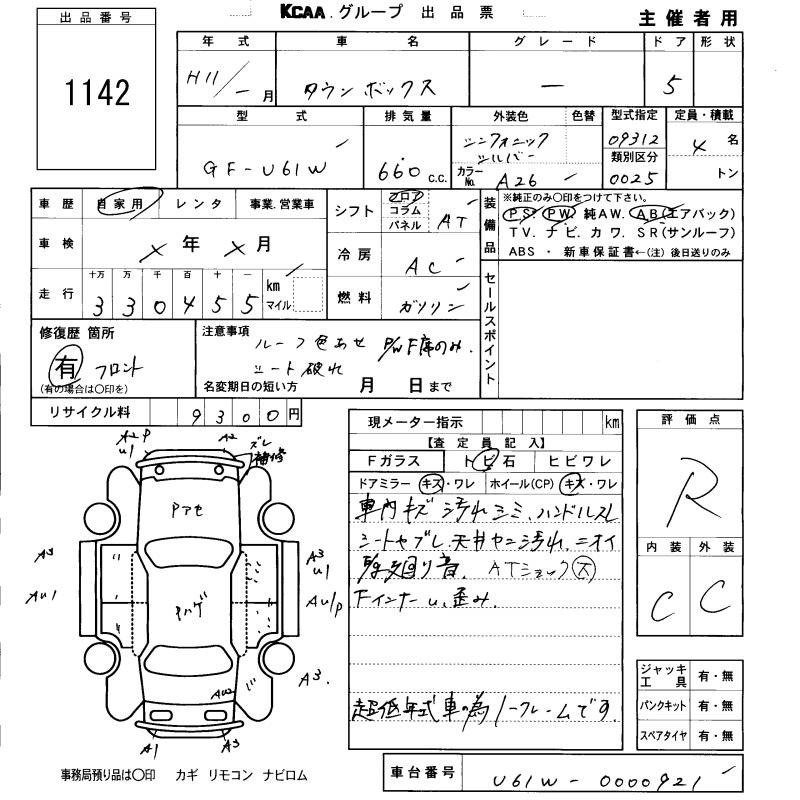 KCAA グループ 出品票
主催者用
出品番号
1142
年式 車名 グレード ドア 形状
H11/－月 タウンボックス － 5
型式 排気量 外装色 色替 型式指定 定員・積載
GF-U61W 660 c.c. シンフォニックシルバー カラーNo. A26 09312 4名
類別区分
0025 トン
車歴 自家用 レンタ 事業.営業車
車検 ×年×月
走行 十万 万 千 百 十 一 km マイル
3 3 0 4 5 5
シフト フロア コラム パネル AT
冷房 AC
燃料 ガソリン
装備品 ※純正のみ○印をつけて下さい。
PS. PW. 純AW. AB(エアバック)
TV. ナビ. カワ. SR(サンルーフ)
ABS ・ 新車保証書←(注) 後日送りのみ
セールスポイント
修復歴 箇所
有 フロント
(有の場合は○印を)
注意事項
ルーフ色あせ P/W F席のみ.
シート破れ
名変期日の短い方 月 日まで
リサイクル料 9300円
現メーター指示 km
【査定員記入】
Fガラス トビ石 ヒビワレ
ドアミラー キズ・ワレ ホイール(CP) キズ・ワレ
車内キズ 汚れ シミ. ハンドルスレ
シートヤブレ. 天井ヤニ汚れ. ニオイ
廻り音. ATショック大
Fインナーu、歪み.
超低年式車の為ノークレームです.
評価点
R
内装 外装
C C
ジャッキ工具 有・無
パンクキット 有・無
スペアタイヤ 有・無
A2P
u1
A2
ズレ
補修
Pアセ
Pハゲ
A3
Au1
A3
u1
Au1P
A3.
AU2
A1
A3
事務局預り品は○印 カギ リモコン ナビロム
車台番号 U61W-0000921